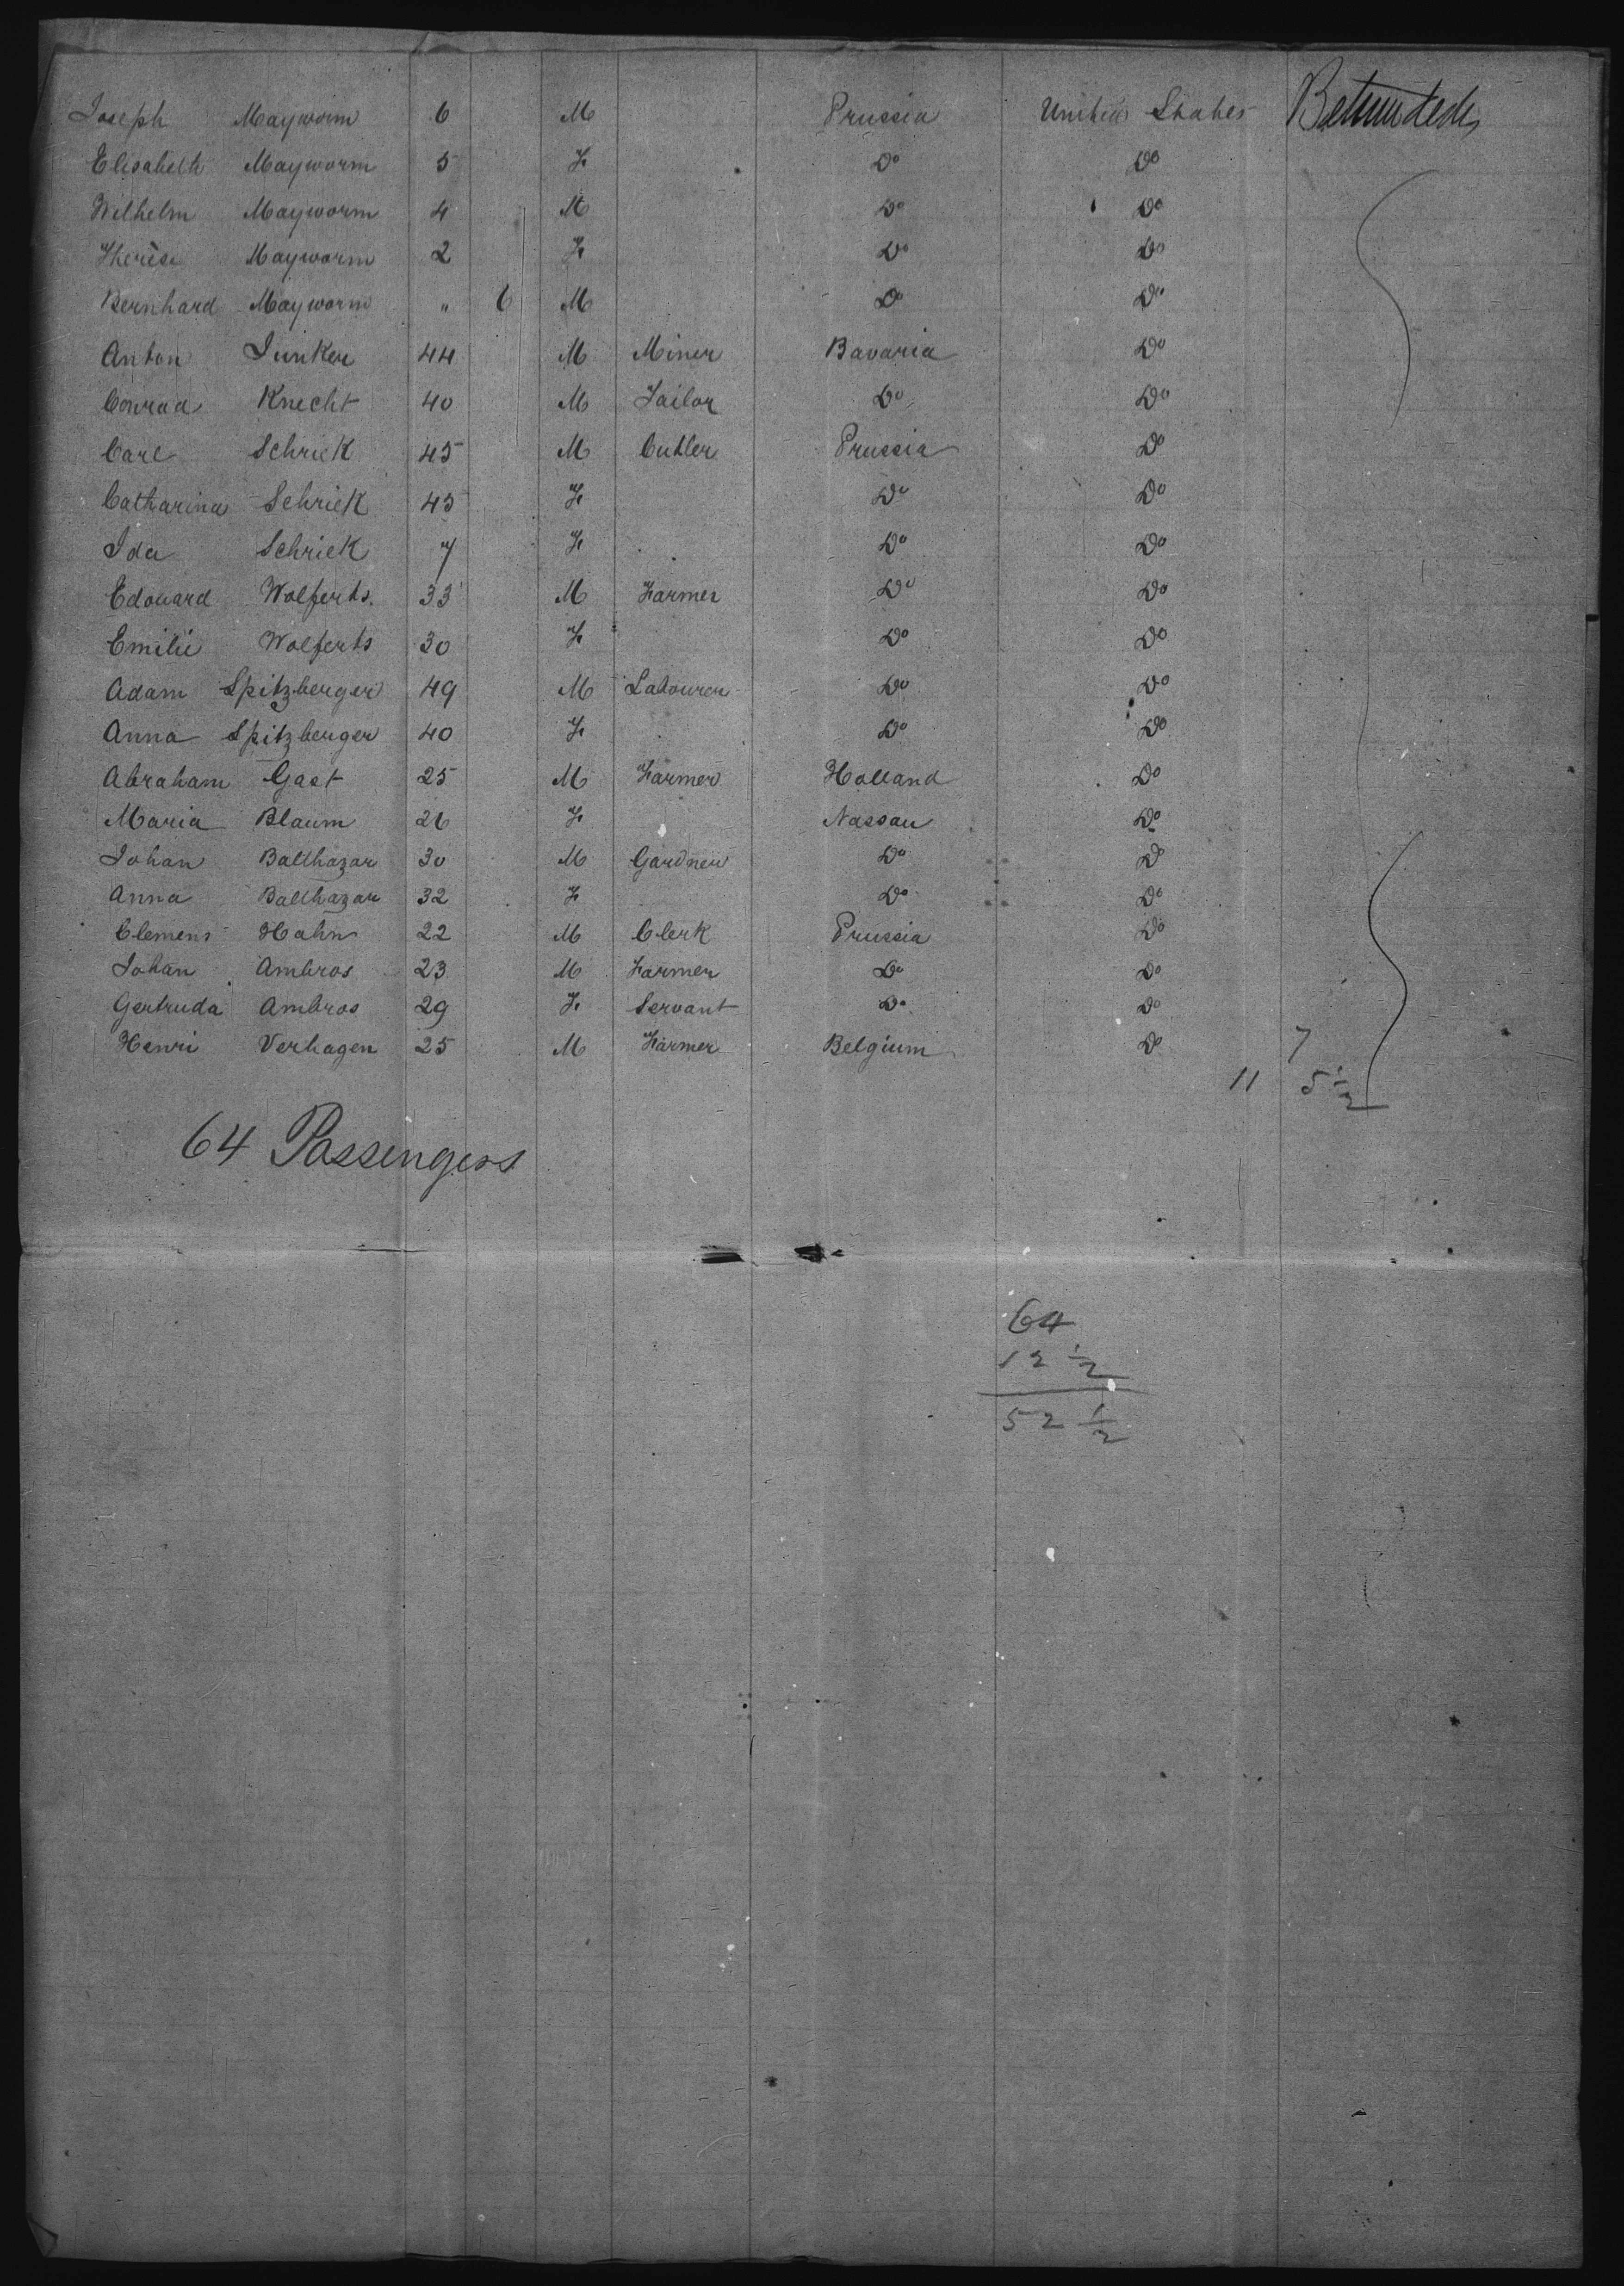 Joseph Mayworm 6 M Prussia United States Betweendecks
Elisabeth Mayworm 5 F Do Do
Wilhelm Mayworm 4 M Do Do
Therèse Mayworm 2 F Do Do
Bernhard Mayworm " 6 M Do Do
Anton Junker 44 M Miner Bavaria Do
Conrad Knecht 40 M Tailor Do Do
Carl Schriek 45 M Cutler Prussia Do
Catharina Schriek 45 F Do Do
Ida Schriek 7 F Do Do
Edouard Wolferts 33 M Farmer Do Do
Emilie Wolferts 30 F Do Do
Adam Spitzberger 49 M Labourer Do Do
Anna Spitzberger 40 F Do Do
Abraham Gast 25 M Farmer Holland Do
Maria Blaum 26 F Nassau Do
Johan Balthazar 30 M Gardner Do Do
Anna Balthazar 32 F Do Do
Clemens Hahn 22 M Clerk Prussia Do
Johan Ambros 23 M Farmer Do Do
Gertruda Ambros 29 F Servant Do Do
Henri Verhagen 25 M Farmer Belgium Do 7
11 5 1/2
64 Passengers
64
12 1/2
52 1/2